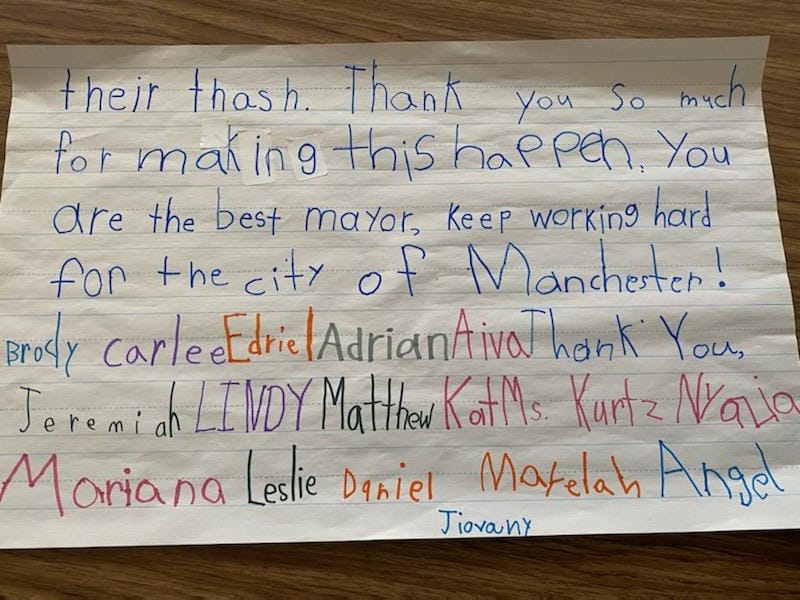 their thash. Thank you so much
for making this happen. You
are the best mayor, keep working hard
for the city of Manchester!
Brody Carlee Edriel Adrian Aiva Thank You,
Jeremiah LINDY Matthew Kat Ms. Kurtz Nyaja
Mariana Leslie Daniel Mayelah Angel
Jiovany